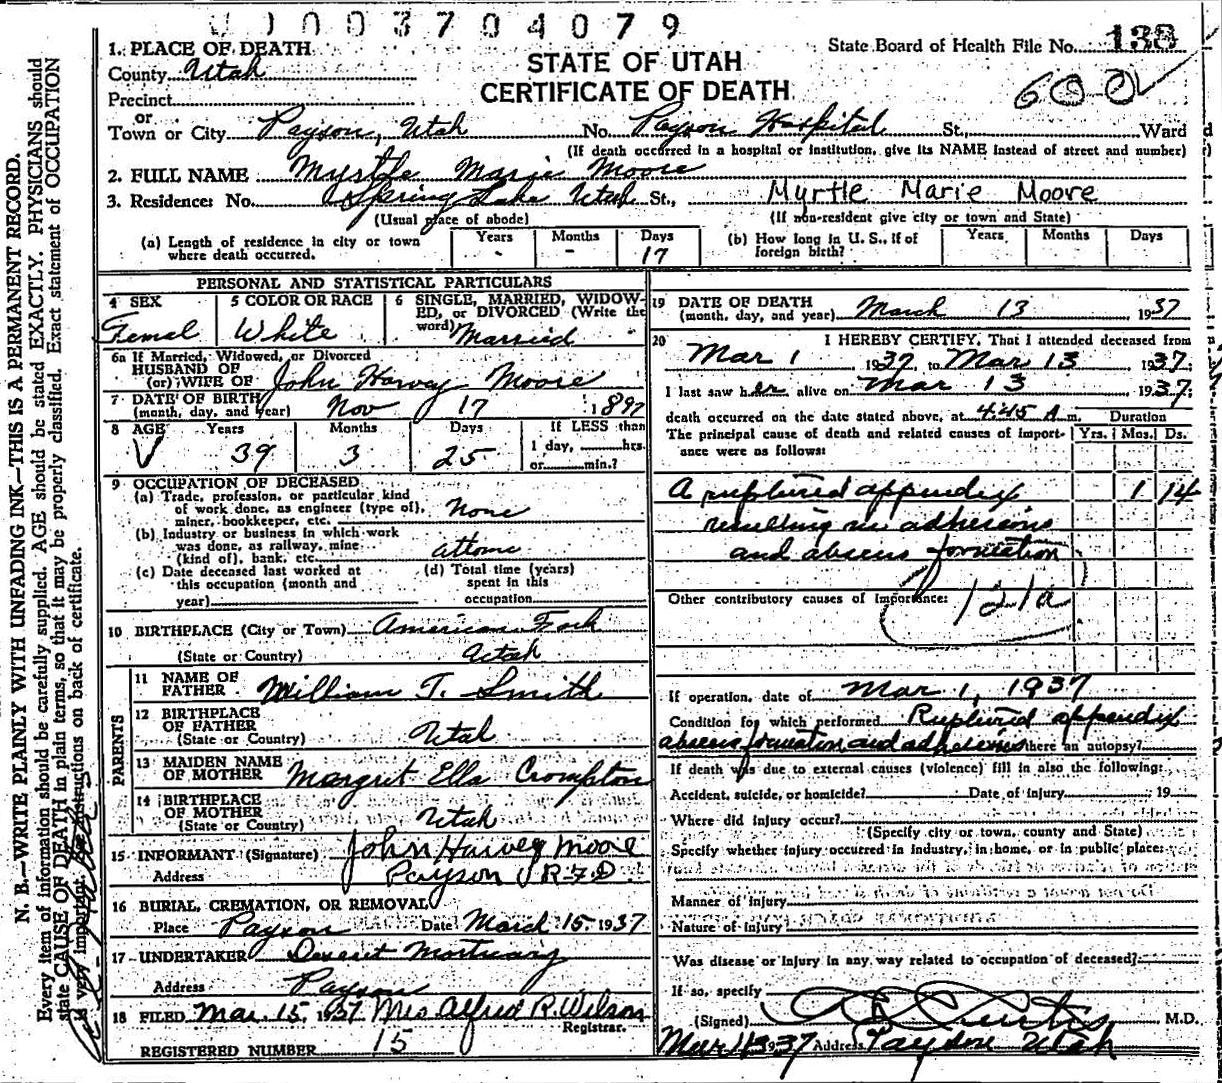 0003704079
State Board of Health File No. 138
STATE OF UTAH
CERTIFICATE OF DEATH
600
1. PLACE OF DEATH
County Utah
Precinct
or
Town or City Payson, Utah No. Payson Hospital St., Ward
(If death occurred in a hospital or institution, give its NAME instead of street and number)
2. FULL NAME Myrtle Marie Moore
3. Residence: No. Spring Lake Utah St., Myrtle Marie Moore
(Usual place of abode) (If non-resident give city or town and State)
(a) Length of residence in city or town where death occurred. Years - Months - Days 17
(b) How long in U. S., if of foreign birth? Years Months Days
PERSONAL AND STATISTICAL PARTICULARS
4 SEX Femal
5 COLOR OR RACE White
6 SINGLE, MARRIED, WIDOWED, or DIVORCED (Write the word) Married
6a If Married, Widowed, or Divorced
HUSBAND OF
(or) WIFE OF John Harvey Moore
7 DATE OF BIRTH
(month, day, and year) Nov 17 1897
8 AGE Years 39 Months 3 Days 25
If LESS than
1 day, hrs.
or min.?
9 OCCUPATION OF DECEASED
(a) Trade, profession, or particular kind
of work done, as engineer (type of),
miner, bookkeeper, etc. None
(b) Industry or business in which work
was done, as railway, mine
(kind of), bank, etc. attome
(c) Date deceased last worked at
this occupation (month and
year)
(d) Total time (years)
spent in this
occupation
10 BIRTHPLACE (City or Town) American Fork
(State or Country) Utah
PARENTS
11 NAME OF
FATHER William T. Smith
12 BIRTHPLACE
OF FATHER
(State or Country) Utah
13 MAIDEN NAME
OF MOTHER Margret Ella Crompton
14 BIRTHPLACE
OF MOTHER
(State or Country) Utah
15 INFORMANT (Signature) John Harvey Moore
Address Payson R.F.D.
16 BURIAL, CREMATION, OR REMOVAL
Place Payson Date March 15 1937
17 UNDERTAKER Deseret Mortuary
Address Payson
18 FILED Mar. 15, 1937 Mrs Alfred R. Wilson
Registrar.
REGISTERED NUMBER 15
19 DATE OF DEATH
(month, day, and year) March 13 1937
20 I HEREBY CERTIFY, That I attended deceased from
Mar 1 1937, to Mar 13 1937.
I last saw her alive on Mar 13 1937.
death occurred on the date stated above, at 4:45 A m. Duration
The principal cause of death and related causes of importance were as follows: Yrs. Mos. Ds.
A ruptured appendix 1 14
resulting in adhesions
and abscess formation
Other contributory causes of importance: 121a
If operation, date of Mar 1, 1937
Condition for which performed Ruptured appendix
abscess formation and adhesions there an autopsy?
If death was due to external causes (violence) fill in also the following:
Accident, suicide, or homicide? Date of injury 19
Where did injury occur?
(Specify city or town, county and State)
Specify whether injury occurred in industry, in home, or in public place:
Manner of injury
Nature of injury
Was disease or injury in any way related to occupation of deceased?
If so, specify
(Signed) Curtis M.D.
Mar 13 1937 Address Payson Utah
N. B.—WRITE PLAINLY WITH UNFADING INK—THIS IS A PERMANENT RECORD.
Every item of information should be carefully supplied. AGE should be stated EXACTLY. PHYSICIANS should
state CAUSE OF DEATH in plain terms, so that it may be properly classified. Exact statement of OCCUPATION
is very important. See instructions on back of certificate.